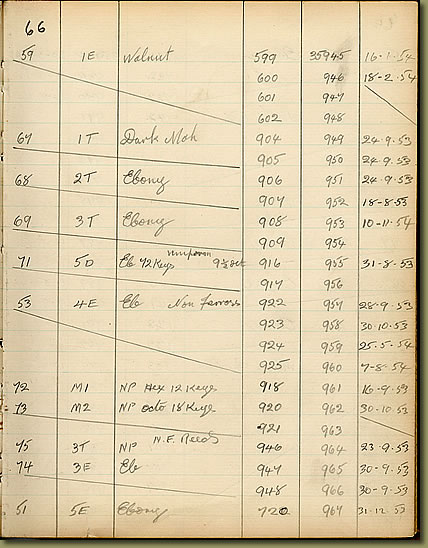 66
59 1E Walnut 599 35945 16-1-54
600 946 18-2-54
601 947
602 948
67 1T Dark Mah 904 949 24-9-53
905 950 24-9-53
68 2T Ebony 906 951 24-9-53
907 952 18-8-55
69 3T Ebony 908 953 10-11-54
909 954
71 5D Eb 72 Keys 916 955 31-8-53
917 956
53 4E Eb Non ferrous 922 957 28-9-53
923 958 30-10-53
924 959 25-5-54
925 960 7-8-54
72 M1 NP Hex 12 Keys 918 961 16-9-53
73 M2 NP Octo 18 Keys 920 962 30-10-53
921 963
N.F. Reeds
75 3T NP 946 964 23-9-53
74 3E Eb 947 965 30-9-53
948 966 30-9-53
51 5E Ebony 720 967 31-12-53